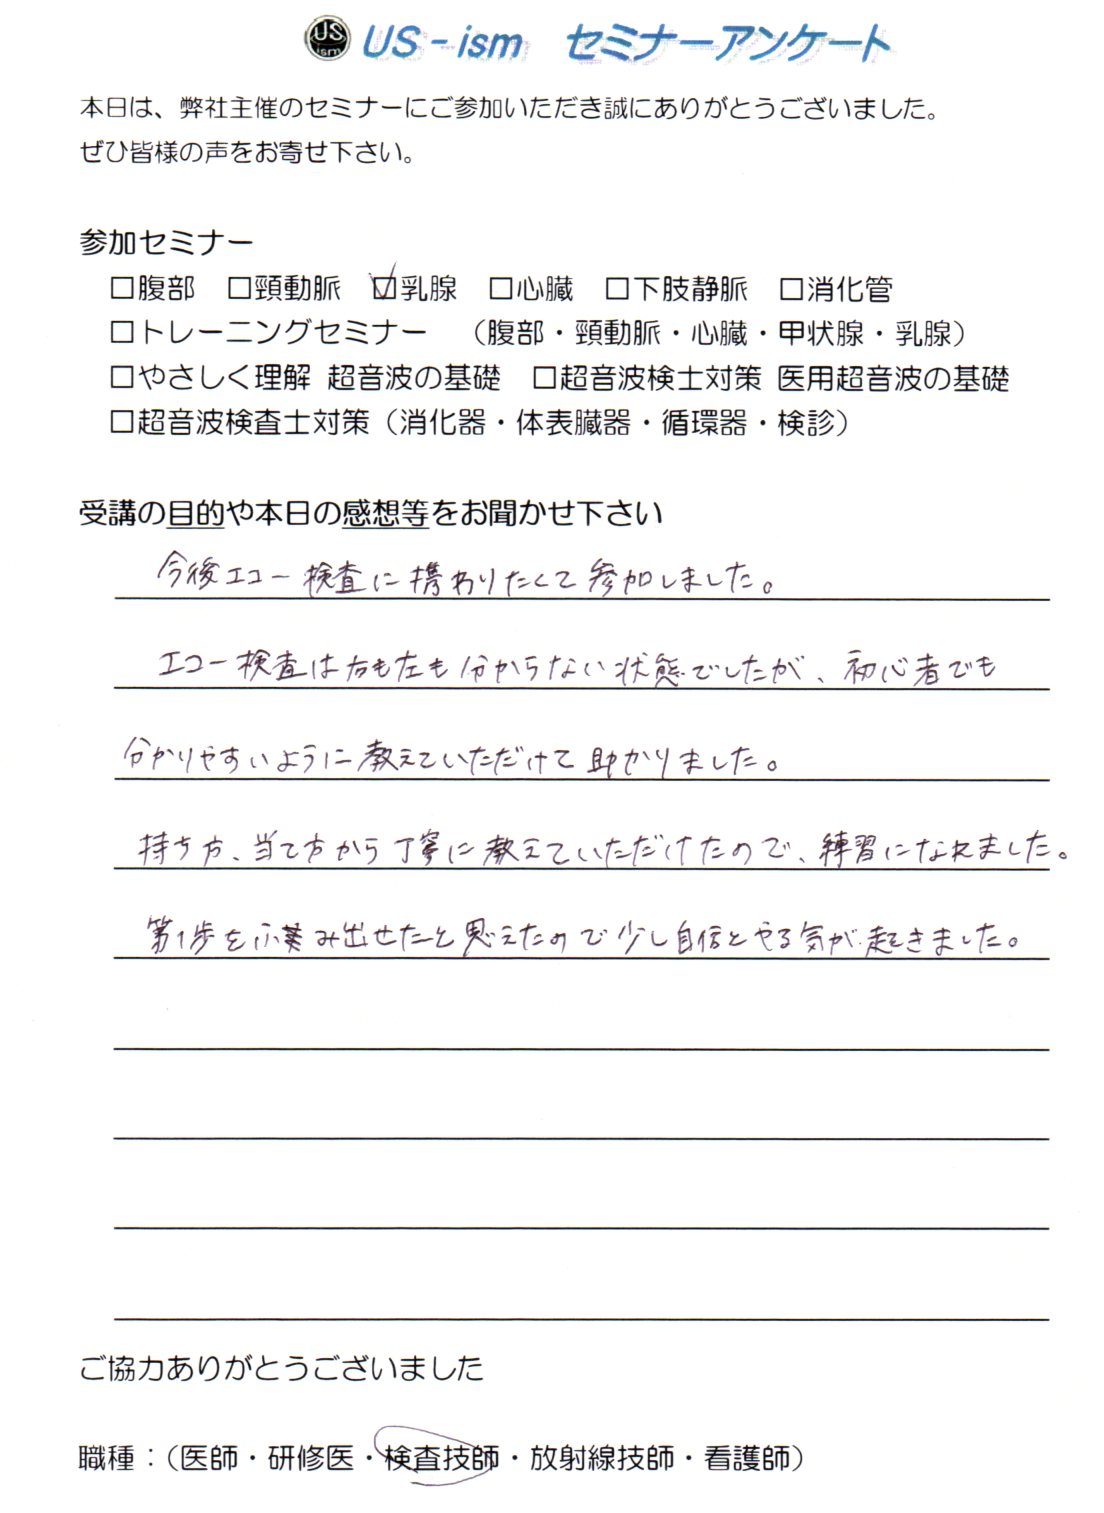 US ism US-ism セミナーアンケート
本日は、弊社主催のセミナーにご参加いただき誠にありがとうございました。
ぜひ皆様の声をお寄せ下さい。
参加セミナー
□腹部 □頸動脈 ☑乳腺 □心臓 □下肢静脈 □消化管
□トレーニングセミナー （腹部・頸動脈・心臓・甲状腺・乳腺）
□やさしく理解 超音波の基礎 □超音波検士対策 医用超音波の基礎
□超音波検査士対策（消化器・体表臓器・循環器・検診）
受講の目的や本日の感想等をお聞かせ下さい
今後エコー検査に携わりたくて参加しました。
エコー検査は右も左も分からない状態でしたが、初心者でも
分かりやすいように教えていただけて助かりました。
持ち方、当て方から丁寧に教えていただけたので、練習になれました。
第1歩を踏み出せたと思えたので少し自信とやる気が起きました。
ご協力ありがとうございました
職種：（医師・研修医・検査技師・放射線技師・看護師）